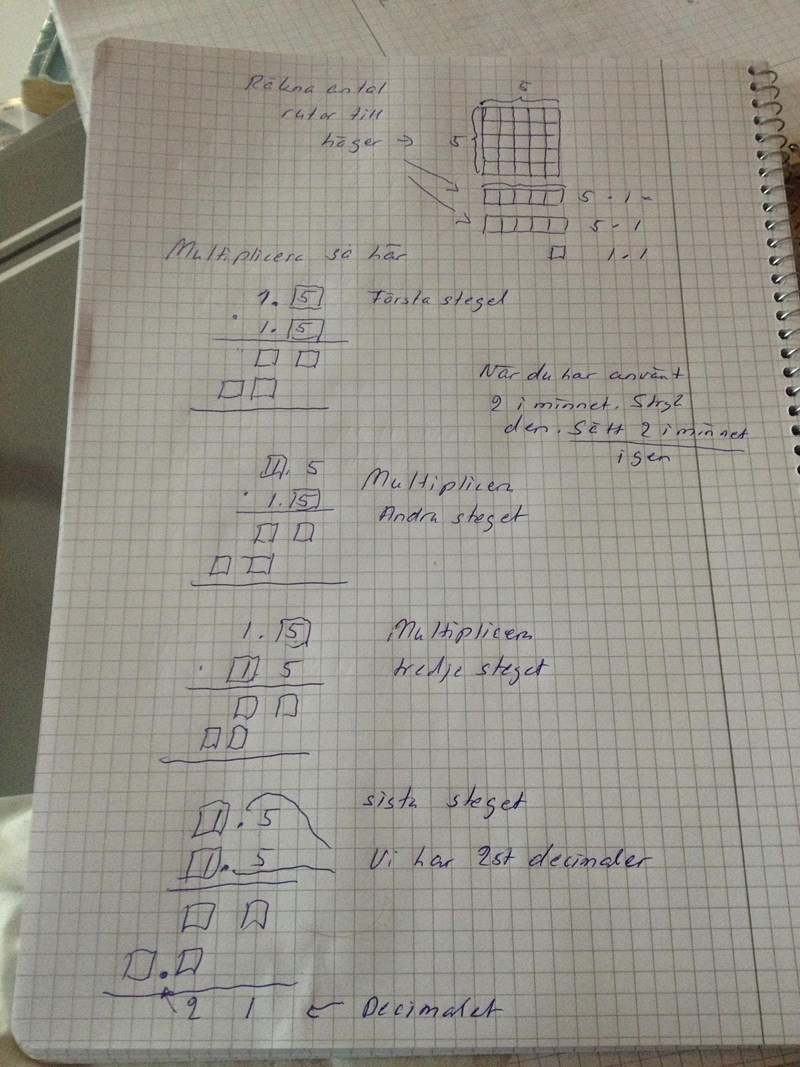 Räkna antal
rutor till
höger →
5
5
5 · 1 -
5 · 1
1 · 1
Multiplicera så här
1. 5
Första steget
· 1. 5
När du har använt
2 i minnet. Stryk
den. Sätt 2 i minnet
igen
1. 5
Multiplicera
· 1. 5
Andra steget
1. 5
Multiplicera
· 1 5
tredje steget
sista steget
1 . 5
1 . 5
Vi har 2st decimaler
.
2 1 ← Decimalet